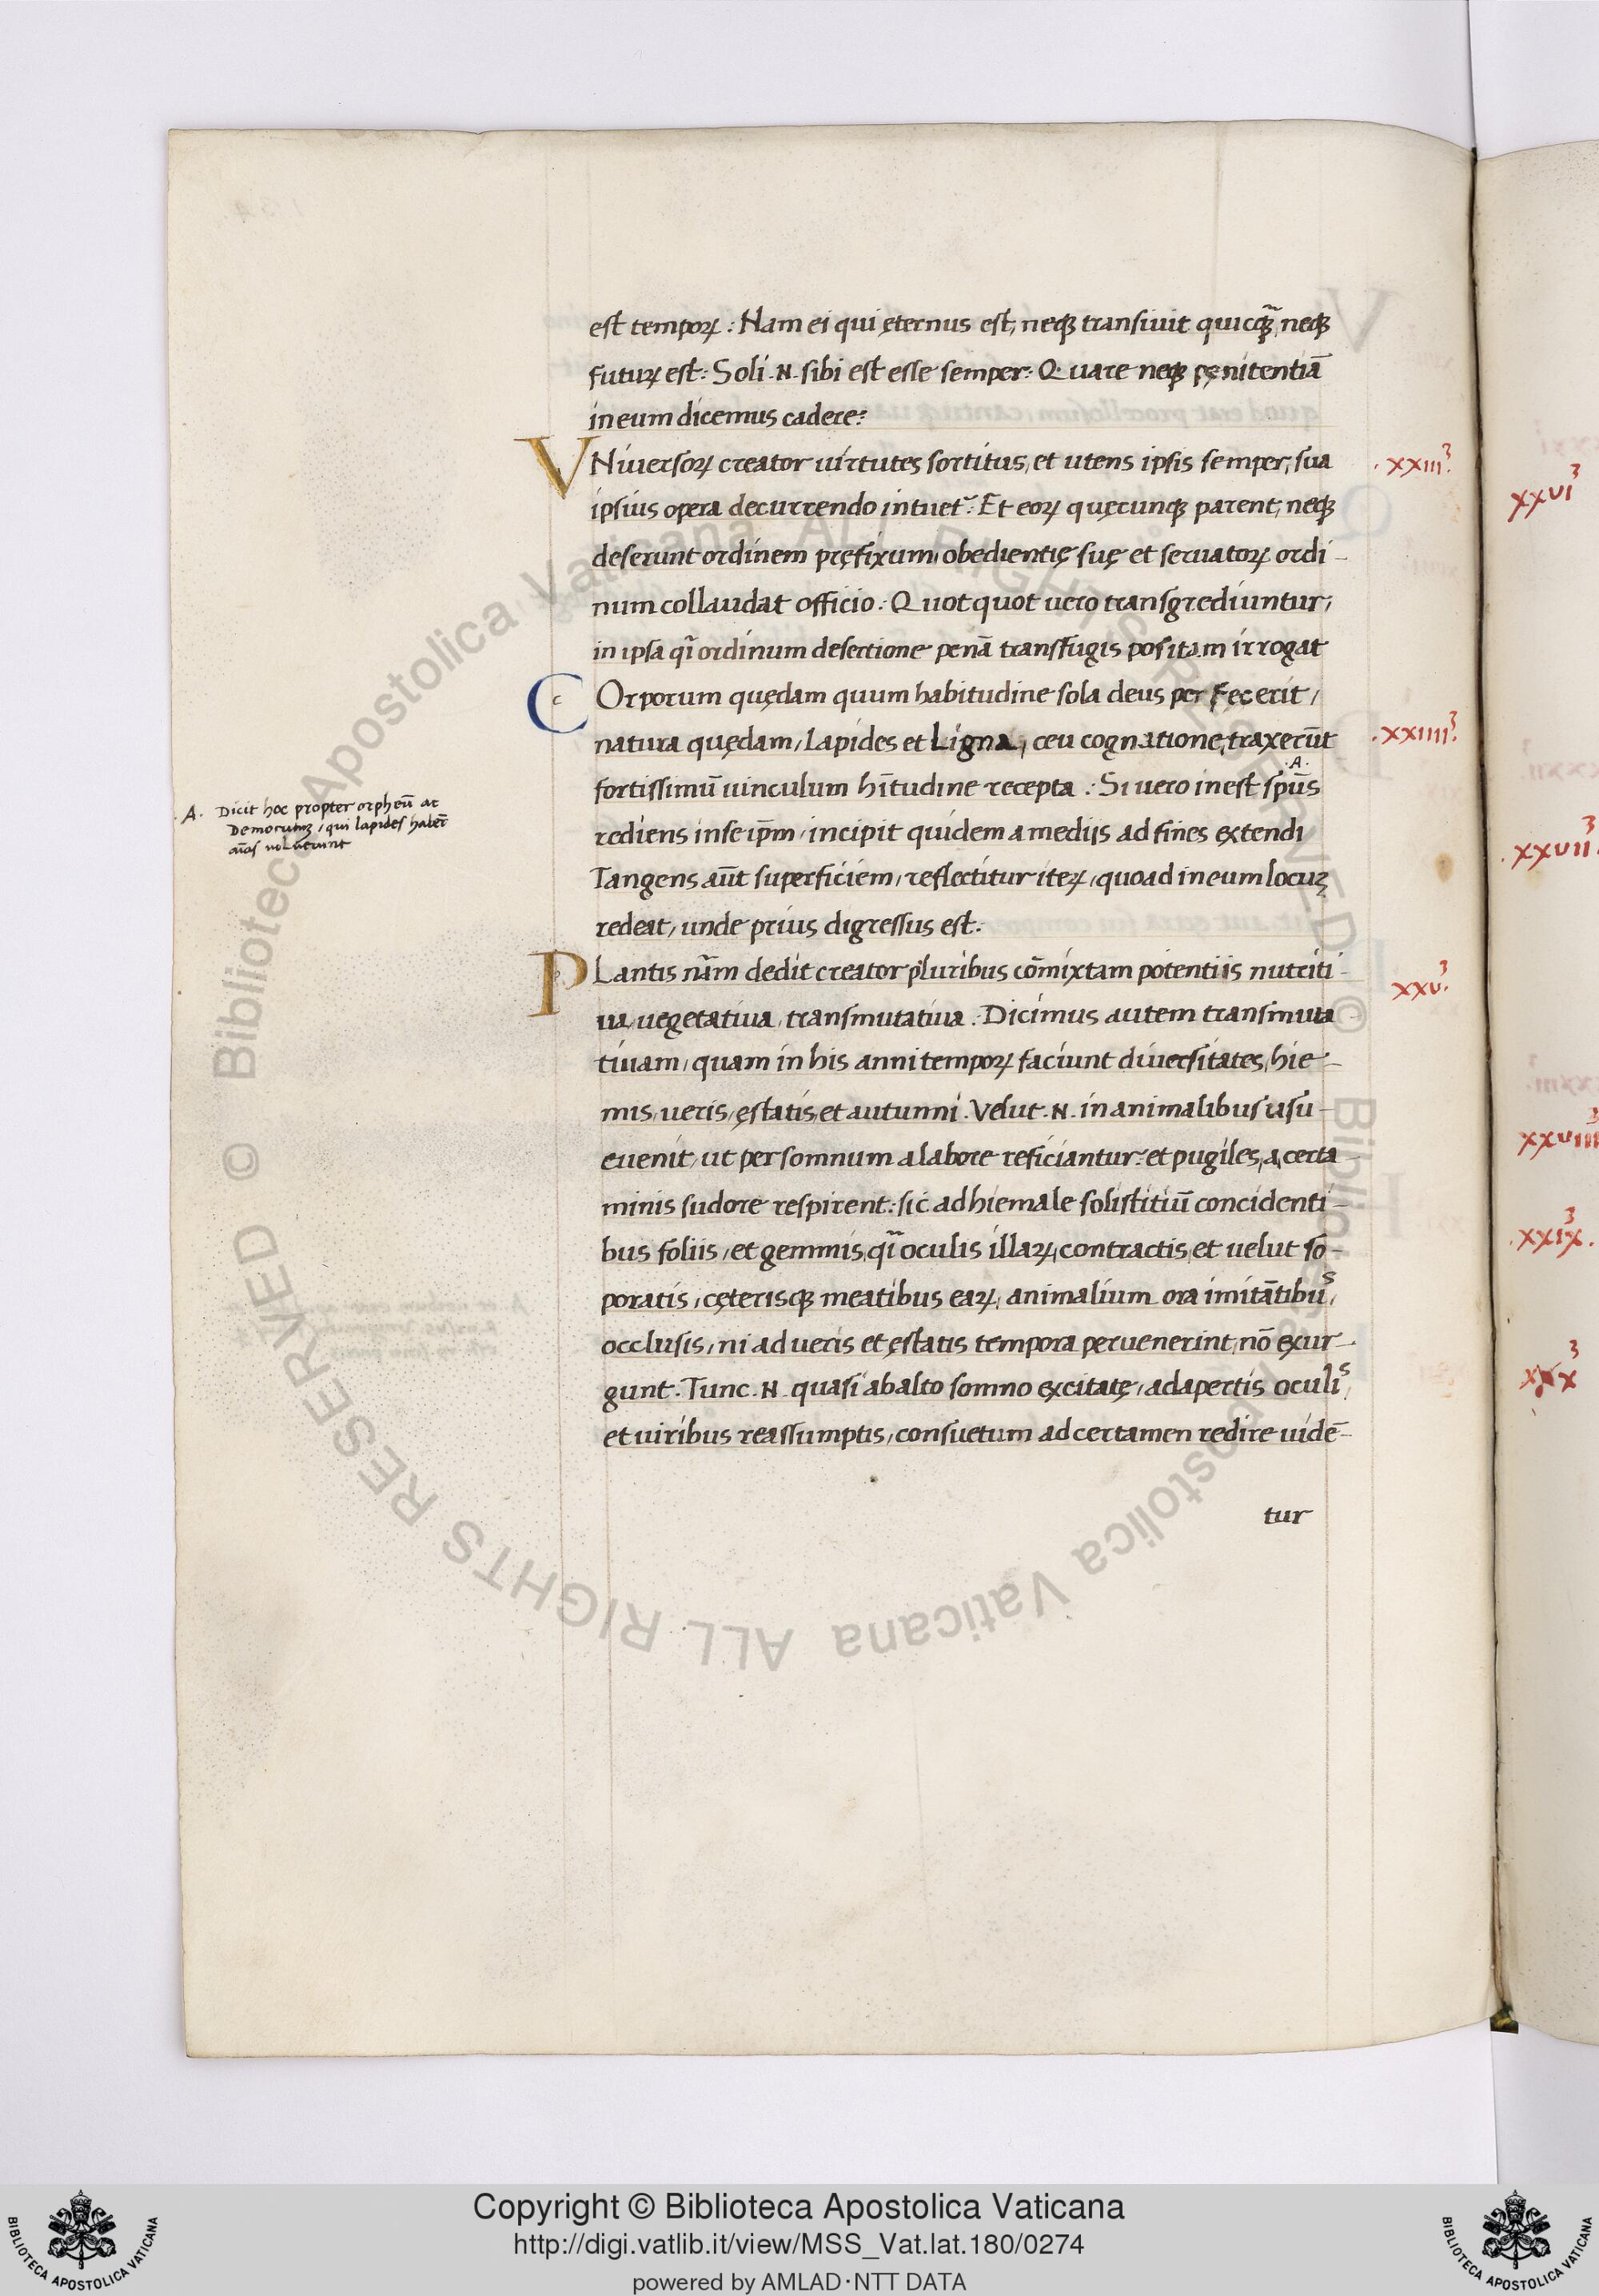 est tempoꝝ : Nam ei qui ęternus est, neqꝫ transiuit quicq̃ꝫ, neqꝫ
futuꝝ est : Soli .N. sibi est esse semper : Quare neqꝫ pęnitentiā
in eum dicemus cadere :
VNiuersoꝝ creator uirtutes sortitus, et utens ipsis semper, sua .xxiii².
ipsius opera decurrendo intuet᷑ : Et eoꝝ quęcunqꝫ parent, neqꝫ
deserunt ordinem pręfixum, obedientię suę et seruatoꝝ ordi-
num collaudat officio : Quotquot uero transgrediuntur,
in ipsa qi̊ ordinum desertione penā transfugis positam irrogat
COrporum quędam quum habitudine sola deus perfecerit,
natura quędam, Lapides et Ligna, ceu cognatione, traxerūt .xxiiii³.
fortissimū uinculum hītudine recepta : Si uero inest sp̄us .A.
.A. Dicit hoc propter orpheū ac
Democritūꝫ, qui lapides haber̄
aīas uoluerunt
rediens in se ip̄m, incipit quidem a mediis ad fines extendi
Tangens aūt superficiem, reflectitur iteꝝ, quoad in eum locuꝫ
redeat, unde prius digressus est :
PLantis nām dedit creator pluribus cōmixtam potentiis nutriti- .xxv³.
ua, uegetatiua, transmutatiua . Dicimus autem transmuta
tiuam, quam in his anni tempoꝝ faciunt diuersitates, hie-
mis, ueris, ęstatis, et autunni . Velut .N. in animalibus usu-
euenit, ut per somnum a labore reficiantur : et pugiles, a, certa-
minis sudore respirent : sic ad hiemale solistitiū concidenti-
bus foliis, et gemmis, qi̊ oculis illaꝝ, contractis, et uelut so-
poratis, cęterisqꝫ meatibus eaꝝ, animalium ora imitātibus,
occlusis, ni ad ueris et ęstatis tempora peruenerint, nō exur-
gunt . Tunc .N. quasi ab alto somno excitatę, adapertis oculis,
et uiribus reassumptis, consuetum ad certamen redire uidē-
tur
xxvi³
.xxvii³.
xxviii³
.xxix³.
xxx³
Copyright © Biblioteca Apostolica Vaticana
http://digi.vatlib.it/view/MSS_Vat.lat.180/0274
powered by AMLAD·NTT DATA
BIBLIOTECA APOSTOLICA VATICANA
BIBLIOTECA APOSTOLICA VATICANA
© Biblioteca Apostolica Vaticana ALL RIGHTS RESERVED © Biblioteca Apostolica Vaticana ALL RIGHTS RESERVED